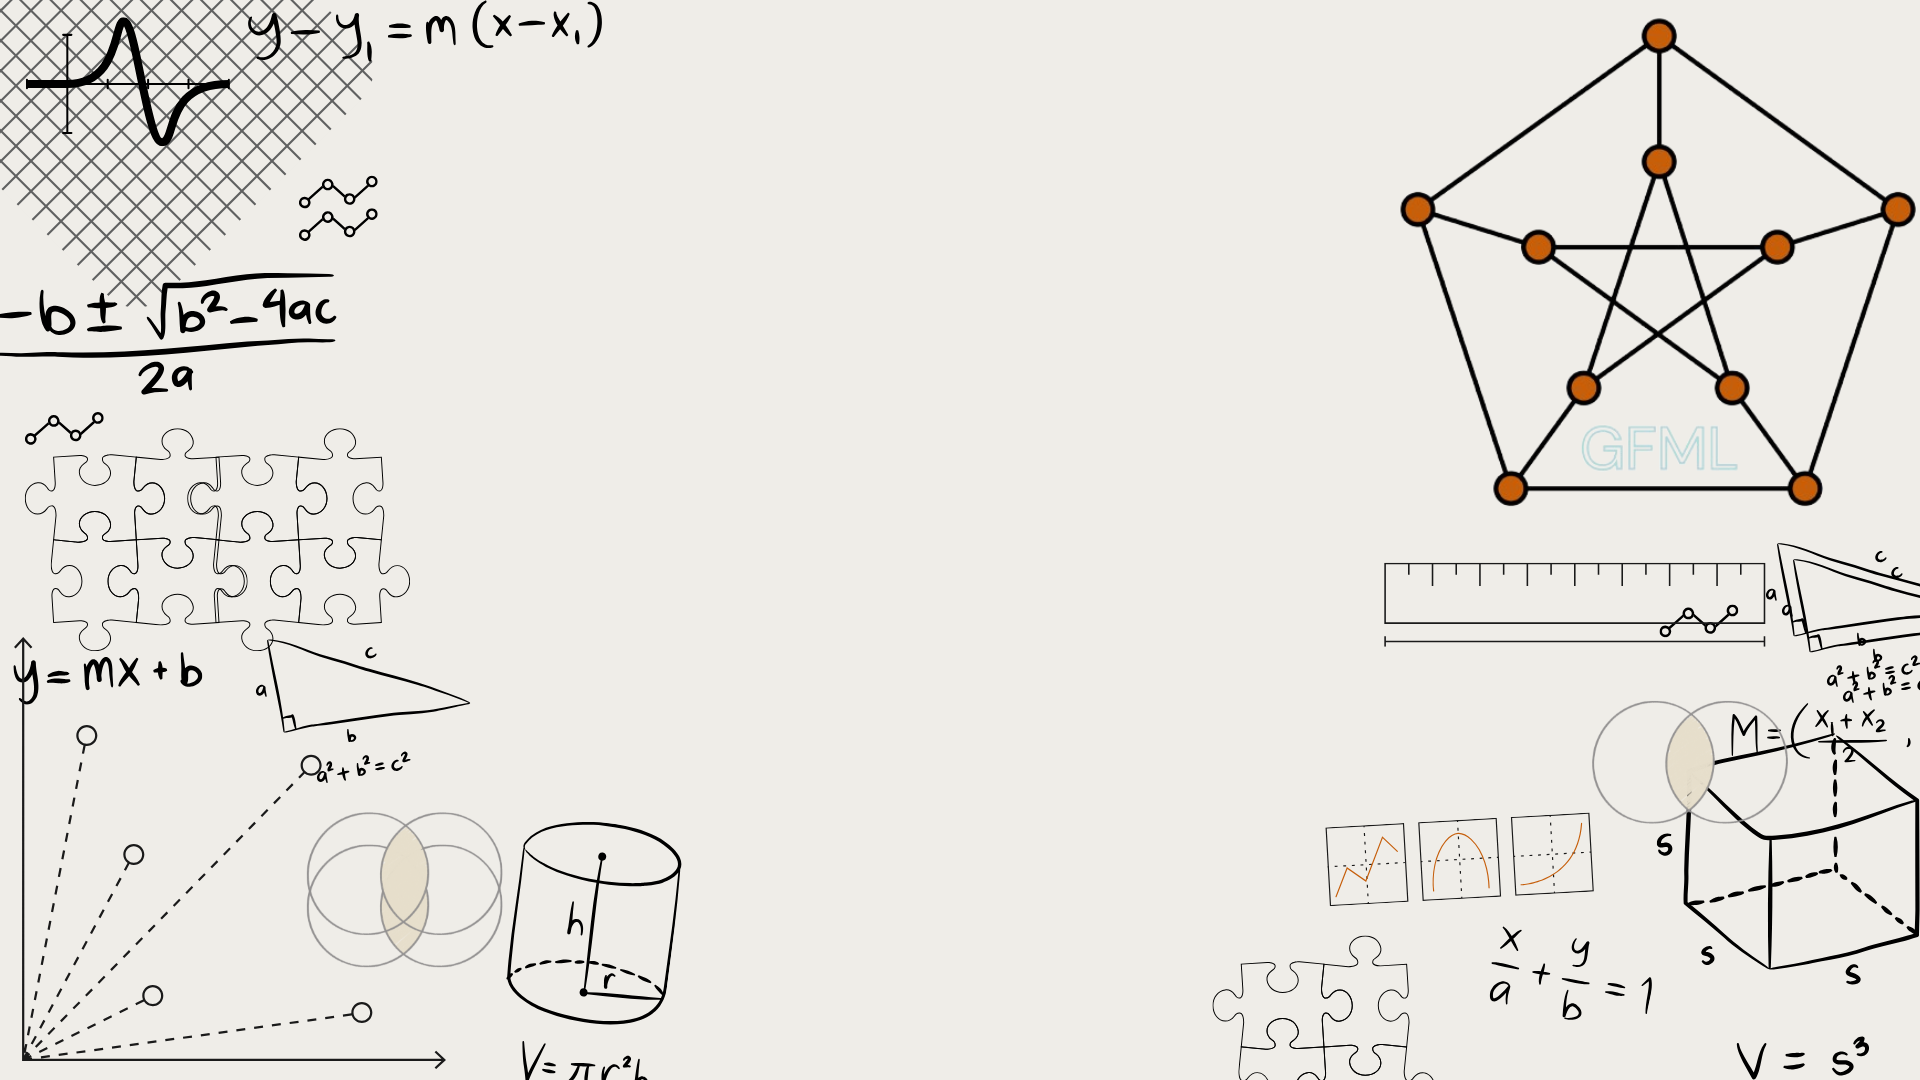 y - y₁ = m (x - x₁)
-b ± √b² - 4ac
2a
y = mx + b
a
c
b
a² + b² = c²
h
r
V = πr²h
GFML
c
c
a
a
b
b
a² + b² = c²
a² + b² =
M = ( x₁ + x₂
2 ,
s
s
s
x/a + y/b = 1
V = s³